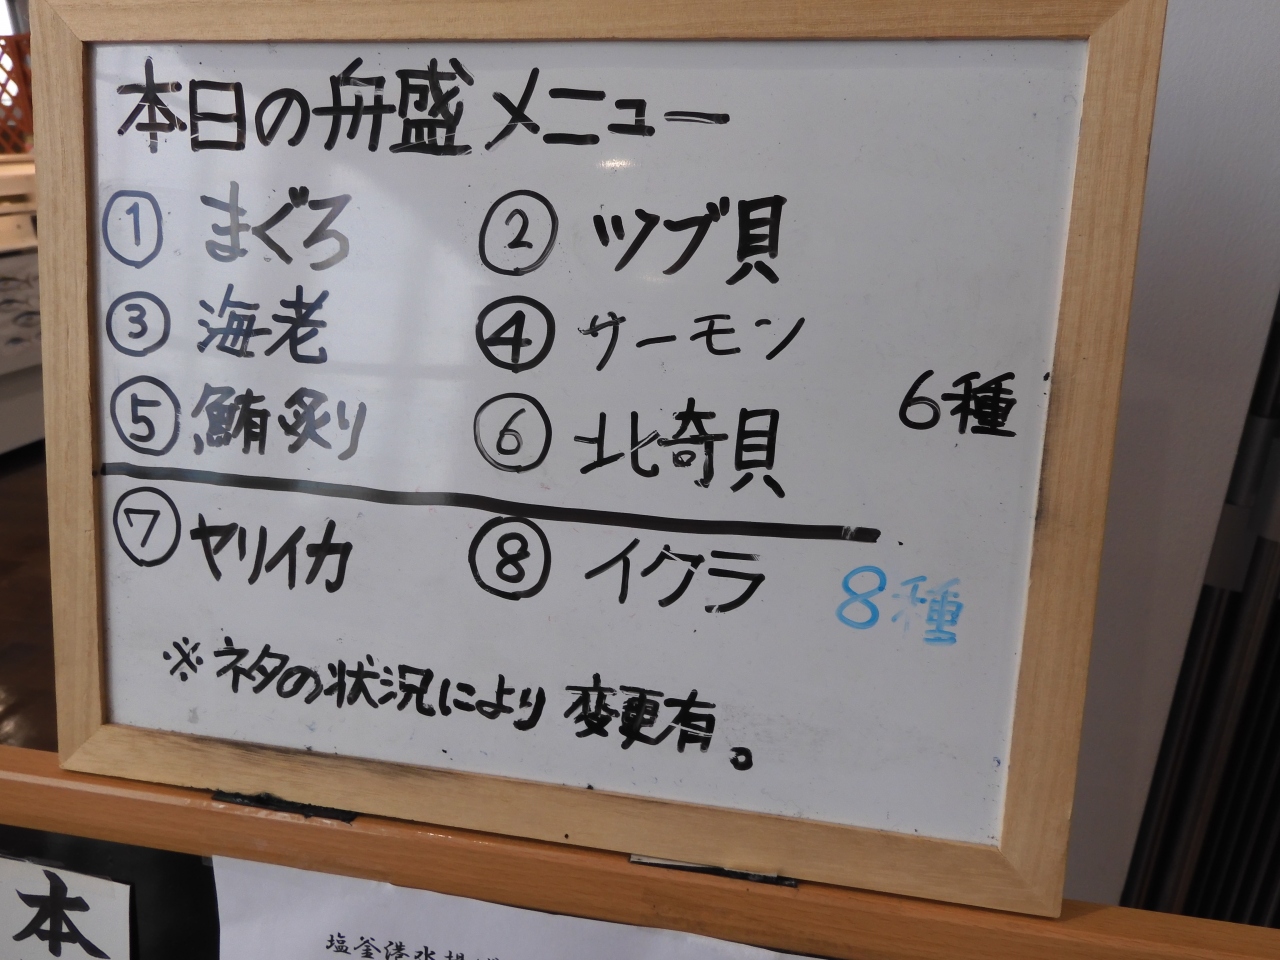 本日の舟盛メニュー
① まぐろ ② ツブ貝
③ 海老 ④ サーモン
⑤ 鮪炙り ⑥ 北奇貝 6種
⑦ ヤリイカ ⑧ イクラ 8種
※ネタの状況により変更有。
本
塩釜港水揚